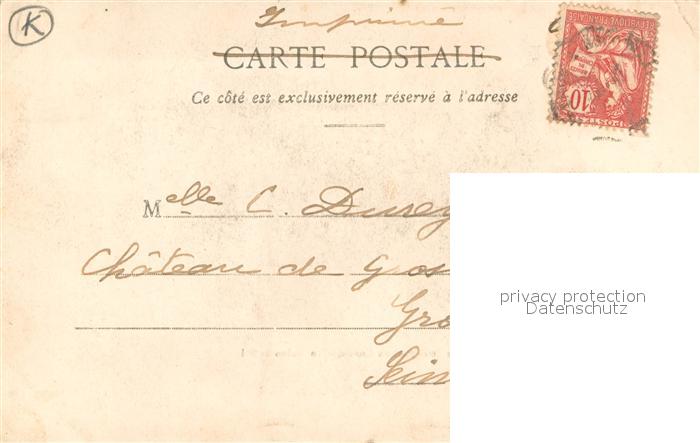 K
Imprimé
CARTE POSTALE
Ce côté est exclusivement réservé à l'adresse
RÉPUBLIQUE FRANÇAISE
10
POSTES
Melle C. Durey
Château de Gros
Gro
Sein
privacy protection
Datenschutz